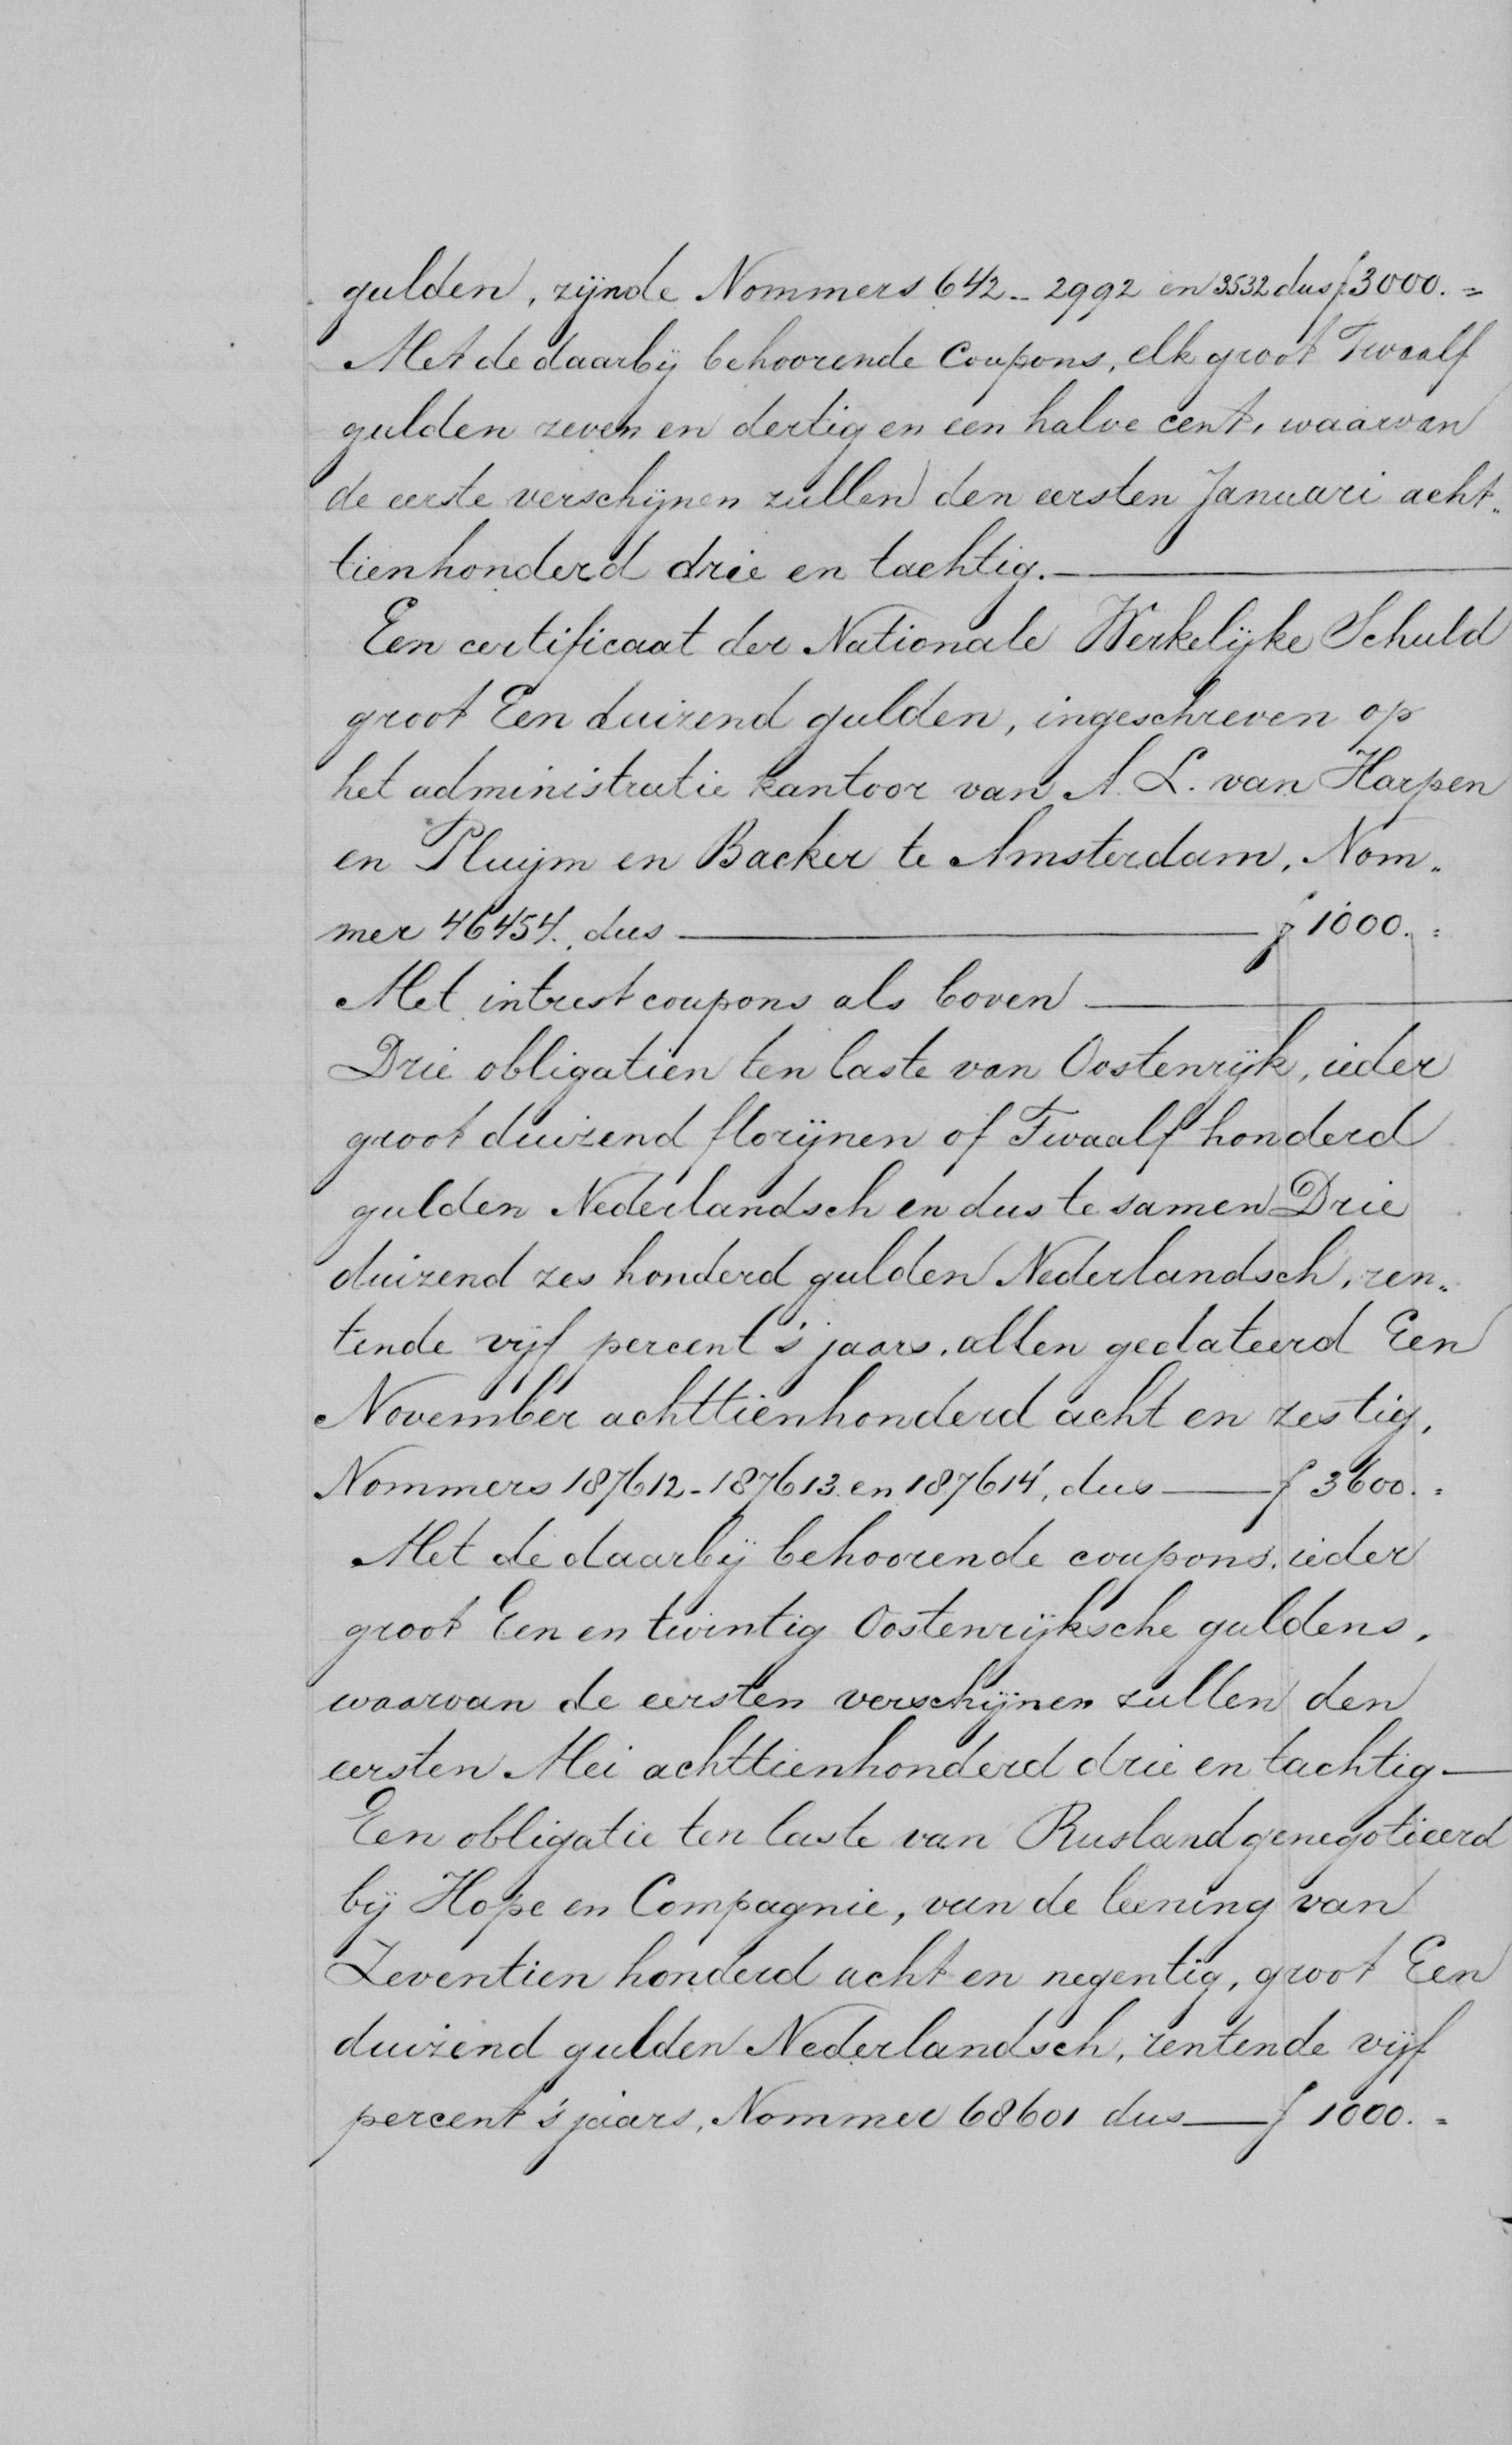 gulden, zijnde Nommers 642 - 2992 en 3532 dus f 3000. =
Met de daarbij behoorende Coupons, elk groot Twaalf
gulden zeven en dertig en een halve cent, waarvan
de eerste verschijnen zullen den eersten Januari acht„
tienhonderd drie en tachtig. —
Een certificaat der Nationale Werkelijke Schuld
groot Een duizend gulden, ingeschreven op
het administratie kantoor van A. L. van Harpen
en Pluijm en Backer te Amsterdam, Nom„
mer 46454. dus — f 1000. =
Met intrest coupons als boven —
Drie obligatien ten laste van Oostenrijk, ieder
groot duizend florijnen of Twaalf honderd
gulden Nederlandsch en dus te samen Drie
duizend zes honderd gulden Nederlandsch, ren„
tende vijf percent 's jaars, allen gedateerd Een
November achttienhonderd acht en zestig,
Nommers 187612 - 187613 en 187614, dus — f 3600. =
Met de daarbij behoorende coupons, ieder
groot Een en twintig Oostenrijksche guldens,
waarvan de eersten verschijnen zullen den
eersten Mei achttienhonderd drie en tachtig —
Een obligatie ten laste van Rusland genegotieerd
bij Hope en Compagnie, van de leening van
Zeventien honderd acht en negentig, groot Een
duizend gulden Nederlandsch, rentende vijf
percent 's jaars, Nommer 68601 dus — f 1000. =